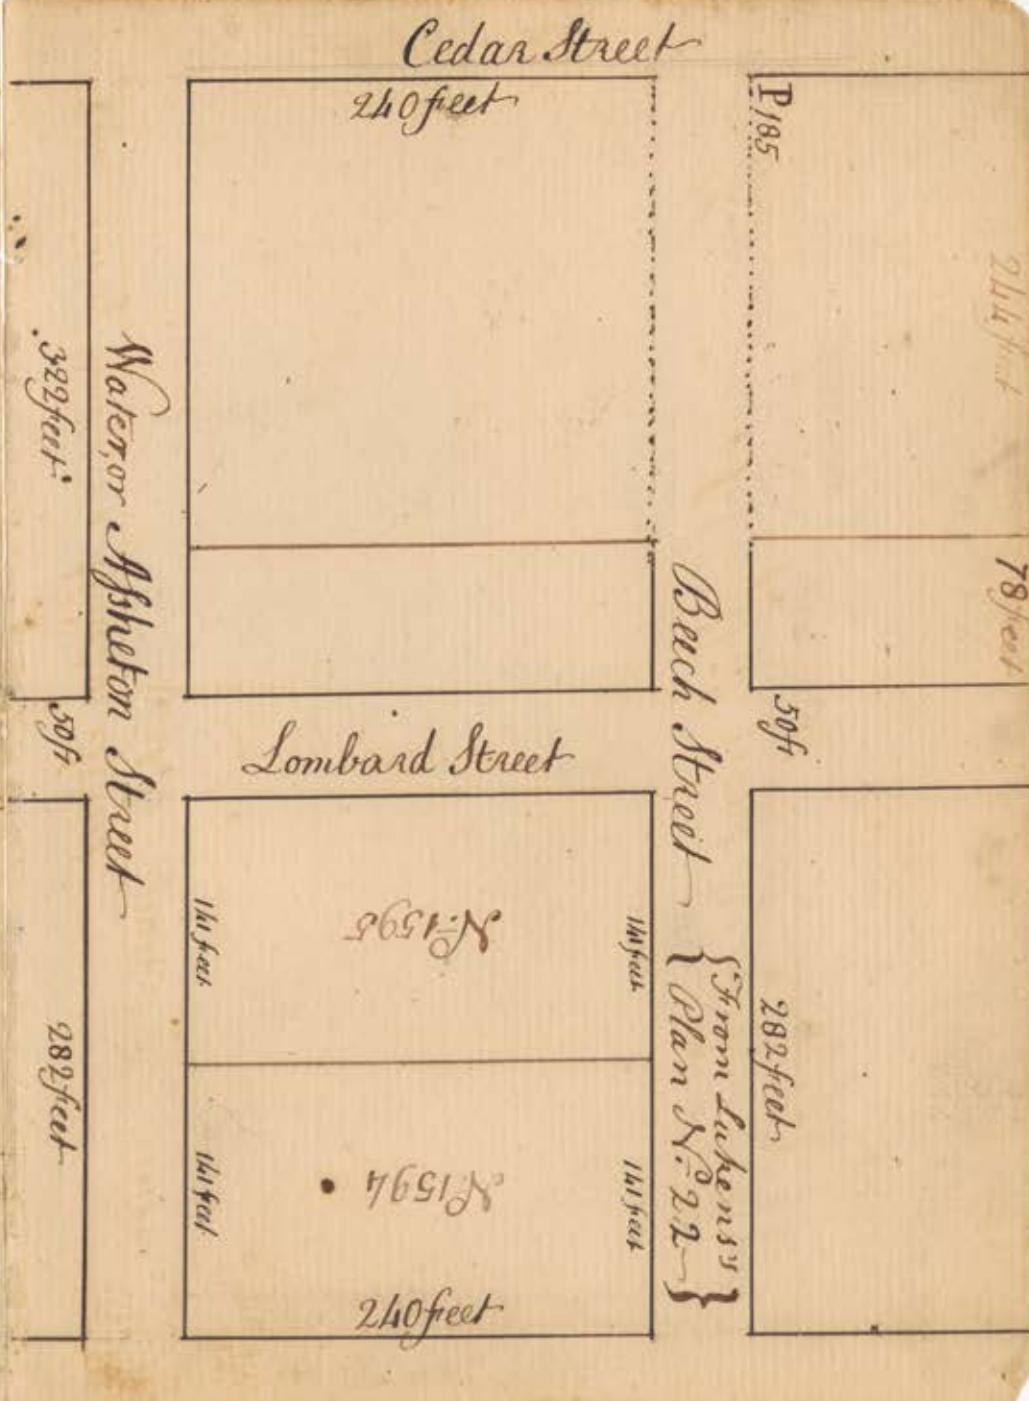 Cedar Street
240 feet
P 185
244 feet
322 feet
Water, or Assheton Street
78 feet
Beech Street
50 ft
50 ft
Lombard Street
141 feet
No. 1595
141 feet
{From Lukens's}
{Plan No. 22}
282 feet
282 feet
141 feet
No. 1594
141 feet
240 feet